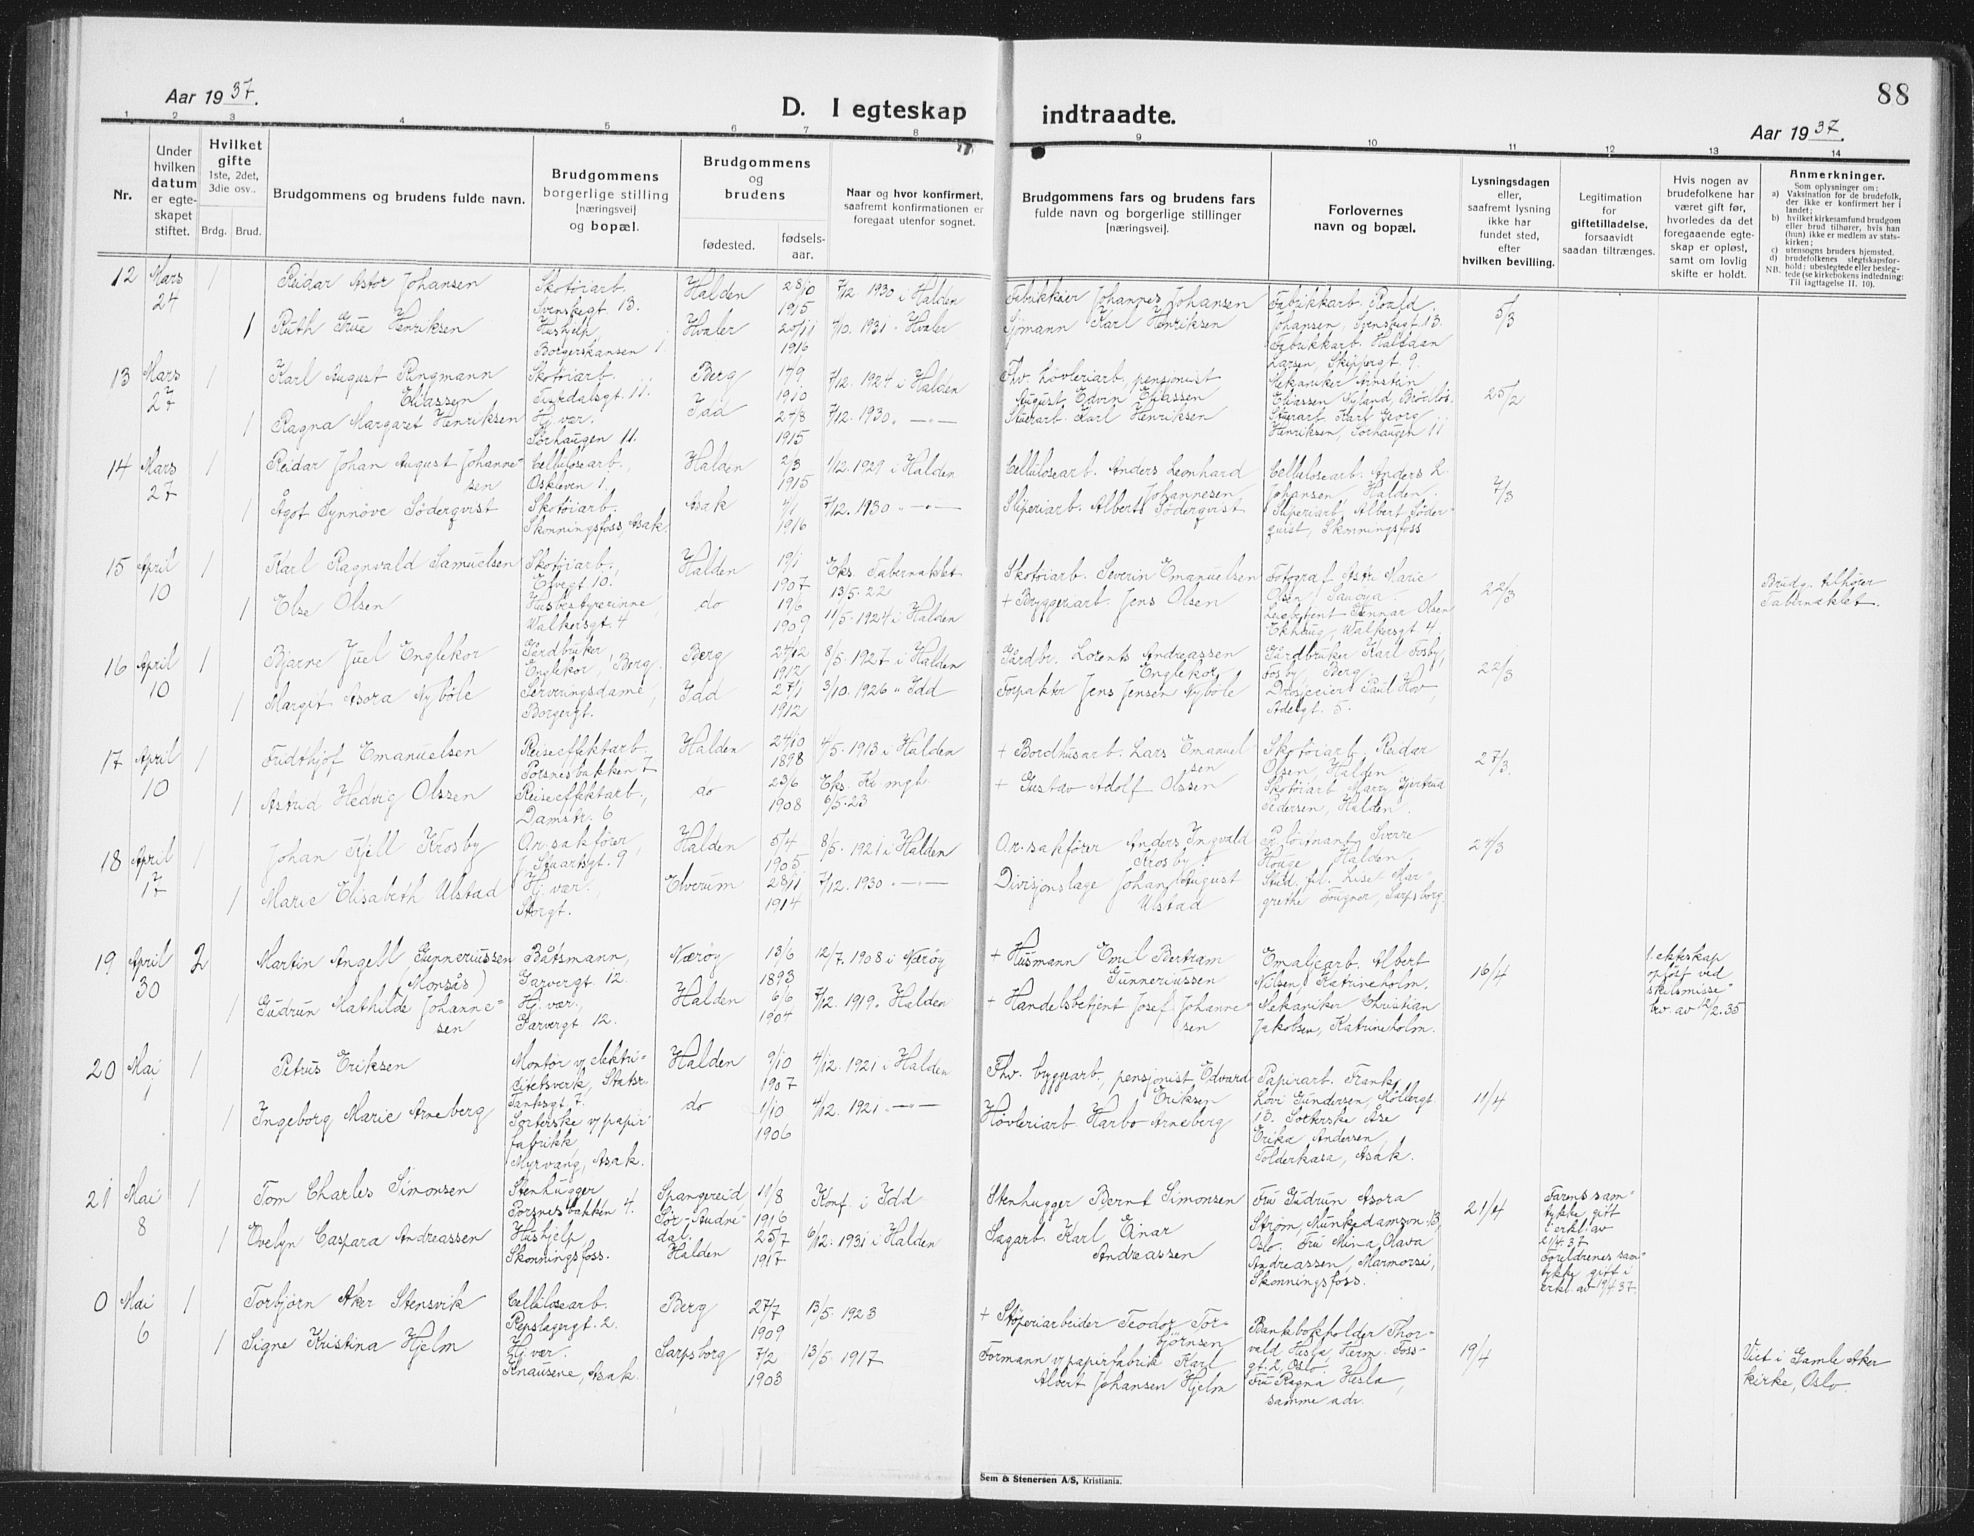 Aar 1937.
D. I egteskap indtraadte.
88
Aar 1937.
1 2 3 4 5 6 7 8 9 10 11 12 13 14
Nr.
Under hvilken datum er egteskapet stiftet.
Hvilket gifte 1ste, 2det, 3die osv..
Brdg. Brud.
Brudgommens og brudens fulde navn.
Brudgommens borgerlige stilling [næringsvei] og bopæl.
Brudgommens og brudens
fødested. fødselsaar.
Naar og hvor konfirmert, saafremt konfirmationen er foregaat utenfor sognet.
Brudgommens fars og brudens fars fulde navn og borgerlige stillinger [næringsvei].
Forlovernes navn og bopæl.
Lysningsdagen eller, saafremt lysning ikke har fundet sted, efter hvilken bevilling.
Legitimation for giftetilladelse, forsaavidt saadan tiltrænges.
Hvis nogen av brudefolkene har været gift før, hvorledes da det foregaaende egteskap er opløst, samt om lovlig skifte er holdt.
Anmerkninger.
Som oplysninger om:
a) Vaksination for de brudefolk, der ikke er konfirmert her i landet;
b) hvilket kirkesamfund brudgom eller brud tilhører, hvis han (hun) ikke er medlem av statskirken;
c) utensogns bruders hjemsted.
d) brudefolkenes slegtskapsforhold: ubeslegtede eller beslegtede (se kirkebokens indledning:
NB. Til iagttagelse II. 10).
12 Mars 24 1 Reidar Astor Johansen Skotøiarb. Svenskegt 13. Halden 28/10 1915 7/12. 1930 i Halden Fabrikkeier Johannes Johansen Fabrikkarb. Roald Johansen, Svenskegt. 13. 5/3
1 Ruth Grue Henriksen Hushjelp Borgerskansen 1 Hvaler 20/11 1916 7/10. 1931 i Hvaler Sjømann Karl Henriksen Fabrikkarb. Haldaan Larsen, Skippergt. 9.
13 Mars 27 1 Karl August Ringmann Eliassen Skotøiarb. Tistedalsgt. 11. Berg 14/9 1910 7/12. 1924 i Halden Fhv. høvleriarb., pensjonist August Edvin Eliassen Mekaniker Arnstein Eliassen Nyland Brødløs. 25/2
1 Ragna Margaret Henriksen Hj. vær. Sørhaugen 11. Idd 27/8 1915 7/12. 1930. — " — Stuerarb. Karl Henriksen Stuerarb. Karl Georg Henriksen, Sørhaugen 11
14 Mars 27 1 Reidar Johan August Johannesen Cellulosearb., Oskleven 1. Halden 2/3 1915 1/12. 1929 i Halden Cellulosearb. Anders Leonhard Johannesen Cellulosearb. Anders L. Johansen, Halden. 7/3
1 Ågot Synnøve Söderqvist Skotøiarb. Skonningsfoss, Asak Asak 4/1 1916 7/12. 1930 — " — Sliperiarb. Albert Söderqvist Sliperiarb. Albert Söderquist, Skonningsfoss
15 April 10 1 Karl Ragnvald Samuelsen Skotøiarb., Elvegt 10. Halden 19/1 1907 Eks. Tabernaklet 13/5. 22 Skotøiarb. Severin Emanuelsen Fotograf Astri Marie Olsen, Savoya. 22/3 Brudg. tilhører Tabernaklet.
1 Else Olsen Husbestyrerinne Walkersgt. 4 do 19/6 1909 11/5. 1924 i Halden + Bryggeriarb. Jens Olsen Gunnar Olsen Ekhaug, Walkersgt 4
16 April 10 1 Bjarne Juel Englekor Gårdbruker Englekor, Berg. Berg 24/12 1912 8/5. 1927 i Halden Gårdbr. Lorents Andreassen Englekor Gårdbruker Karl Fosby, Fosby, Berg. 22/3
1 Margit Asora Nybøle Serveringsdame, Borgergt. Idd 27/1 1912 3/10. 1926 " Idd Forpakter Jens Jensen Nybøle Drosjeeier Paul Hov, Adelgt. 5.
17 April 10 1 Fridthjof Emanuelsen Reiseeffektarb. Porsnesbakken 7 Halden 24/10 1898 4/5. 1913 i Halden + Bordhusarb. Lars Emanuelsen Skotøiarb. Reidar Olsen, Halden 27/3.
1 Astrid Hedvig Olssen Reiseeffektarb., Damstr. 6 do 23/6 1908 Eks. Kr. mgh 6/5. 23 + Gustav Adolf Olssen Skotøiarb Marry Gjertrud Pedersen, Halden.
18 April 17 1 Johan Kjell Krosby O.r.sakfører, J. Stuartsgt. 9 Halden 5/4 1905 8/5. 1921 i Halden O.r.sakfører Anders Ingvald Krosby Pr. løitnant Sverre Houge, Halden. 24/3
1 Marie Elisabeth Ulstad Hj. vær. Storgt. Elverum 28/11 1914 7/12. 1930 — " — Divisjonslæge Johan August Ulstad Stud. fil. Liset Margrethe Fougner, Sarpsborg.
19 April 30 2 Martin Angell Gunneriussen (Monsås) Båtsmann, Garvergt 12. Nærøy 13/6 1893 12/7. 1908 i Nærøy + Husmann Emil Bertram Gunneriussen Emaljearb. Albert Nilsen, Katrineholm. 16/4 1. ekteskap opløst ved skilsmissebev. av 12/2. 35
1 Gudrun Mathilde Johannesen Hj. vær, Garvergt 12. Halden 6/6 1904 7/12. 1919. Halden + Handelsbetjent Josef Johannesen Mekaniker Christian Jakobsen, Katrineholm.
20 Mai 1 1 Petrus Eriksen Montør v/ elektrisitetsverk, Statsr. Tanksgt 7. Halden 9/10 1907 4/12. 1921 i Halden Fhv. byggearb., pensjonist Edvard Eriksen Papirarb. Frank Lovi Gundersen, Møllergt 13. 11/4
1 Ingeborg Marie Arneberg Sorterske v/ papirfabrikk, Myrvang, Asak. do 1/10 1906 4/12. 1921. — " — Høvleriarb. Harbo Arneberg Sorterske Åse Erika Andersen, Folderkasa, Asak.
21 Mai 8 1 Tom Charles Simonsen Stenhugger Porsnesbakken 4. Spangereid Sør-Audnedal. 11/8 1916 Konf. i Idd Stenhugger Bernt Simonsen Fru Gudrun Asora Strøm, Munkedamsvn. 13, Oslo. 21/4 Farens samtykke gift i erkl. av 21/4. 37
1 Evelyn Caspara Andreassen Hushjelp, Skonningsfoss. Halden 25/7 1917 6/12. 1931 i Halden Sagarb. Karl Einar Andreassen Fru Mina Olava Andreassen, Marmorsi, Skonningsfoss. Foreldrenes samtykke gift i erkl. av 19/4 37.
0 Mai 6 1 Torbjørn Aker Stensvik Cellulosearb. Repslagergt. 2. Berg 27/7 1909 13/5. 1923 + Støperiarbeider Teodor Torbjørnsen Bankbokholder Thorvald Hesla, Herm. Fossgt. 2, Oslo. 19/4 Viet i Gamle Aker kirke, Oslo.
1 Signe Kristina Hjelm Hj. vær. Knausene, Asak. Sarpsborg 7/2 1903 13/5. 1917 Formann v/ papirfabrik Karl Albert Johansen Hjelm Fru Ragna Hesla, samme adr.
Sem & Stenersen A/S, Kristiania.